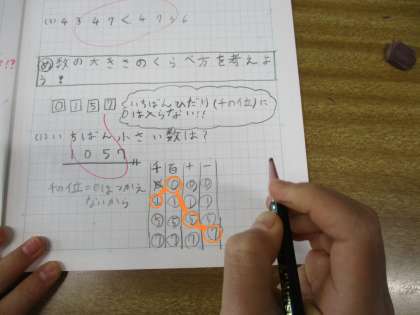 (3) 4 3 4 7 < 4 7 3 6
め 数の大きさのくらべ方を考えよ
う!
0 1 5 7
いちばんひだり(千の位)に
0は入らない!!
(1) い ちばん小さい数は?
1 0 5 7
千の位=0はつかえ
ないから
千 百 十 一
0 0 0 0
1 1 1 1
5 5 5 5
7 7 7 7